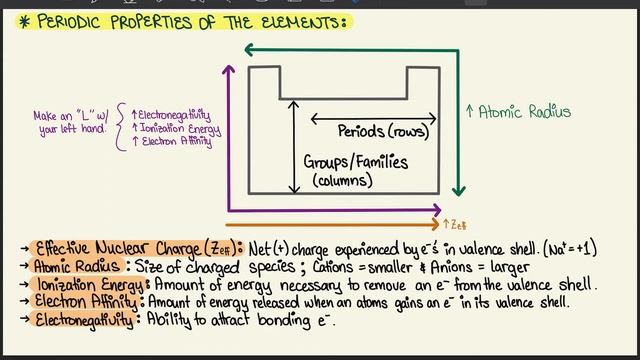 * PERIODIC PROPERTIES OF THE ELEMENTS:
Make an "L" w/
your left hand.
↑ Electronegativity
↑ Ionization Energy
↑ Electron Affinity
Periods (rows)
Groups/Families
(columns)
↑ Atomic Radius
↑ Zeff
→ Effective Nuclear Charge (Zeff): Net (+) charge experienced by e⁻'s in valence shell. (Na⁺ = +1)
→ Atomic Radius: Size of charged species; Cations = smaller & Anions = larger
→ Ionization Energy: Amount of energy necessary to remove an e⁻ from the valence shell.
→ Electron Affinity: Amount of energy released when an atoms gains an e⁻ in its valence shell.
→ Electronegativity: Ability to attract bonding e⁻.